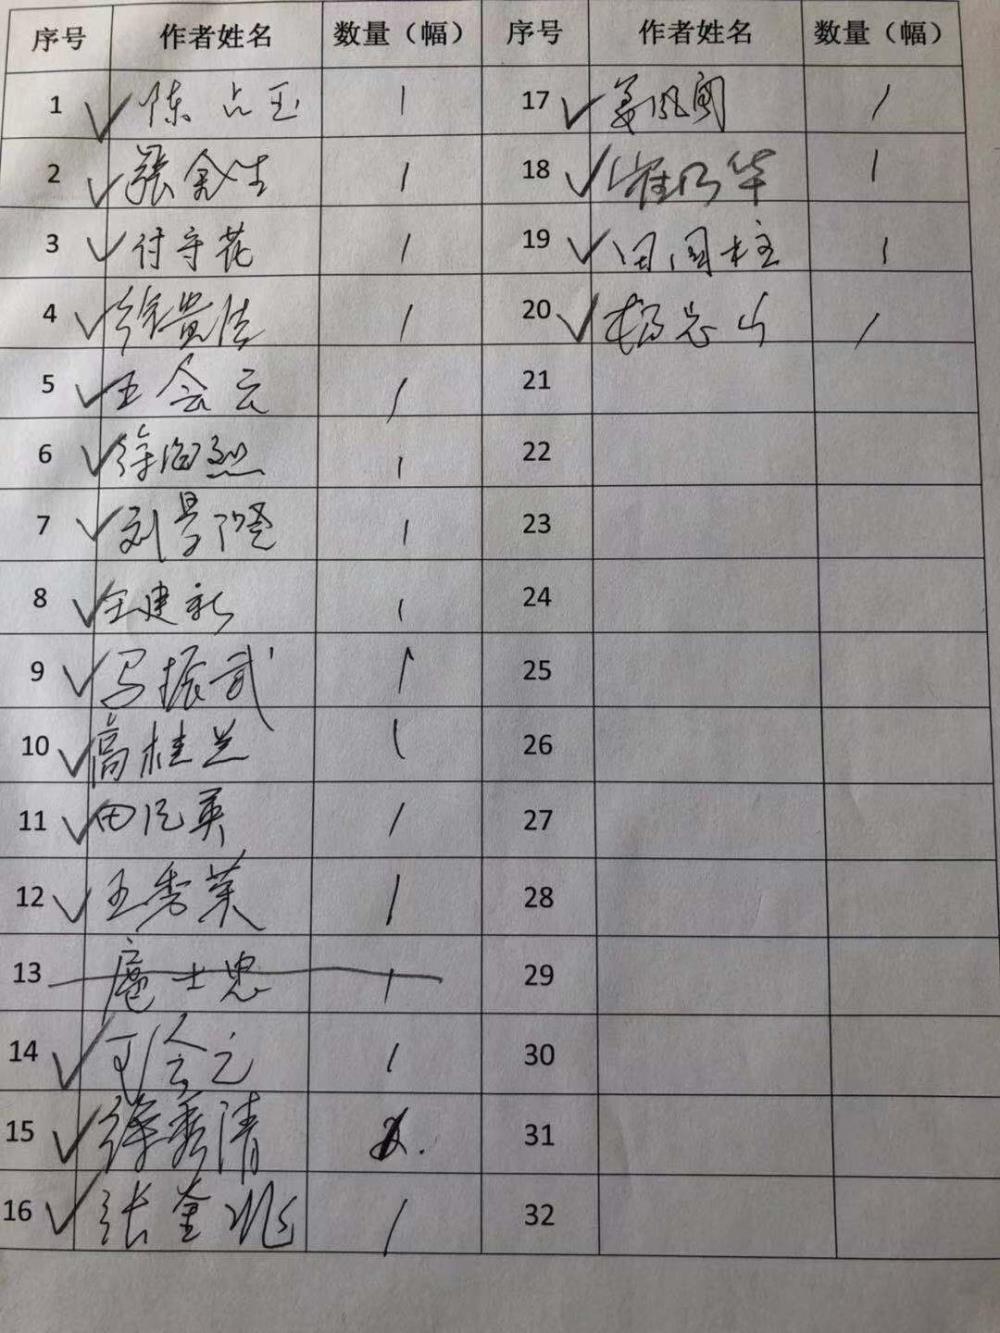 序号 作者姓名 数量（幅） 序号 作者姓名 数量（幅）
1 ✓ 陈占玉 1 17 ✓ 姜凤国 1
2 ✓ 張金生 1 18 ✓ 崔乃华 1
3 ✓ 付守花 1 19 ✓ 田国柱 1
4 ✓ 徐贵法 1 20 ✓ 杨忠山 1
5 ✓ 王会云 1 21
6 ✓ 徐海烈 1 22
7 ✓ 刘 1 23
8 ✓ 王建新 1 24
9 ✓ 冯振武 1 25
10 ✓ 高桂兰 1 26
11 ✓ 田 英 1 27
12 ✓ 王秀英 1 28
13 庞士忠 1 29
14 ✓ 会云 1 30
15 ✓ 徐秀清 31
16 ✓ 张金兆 1 32